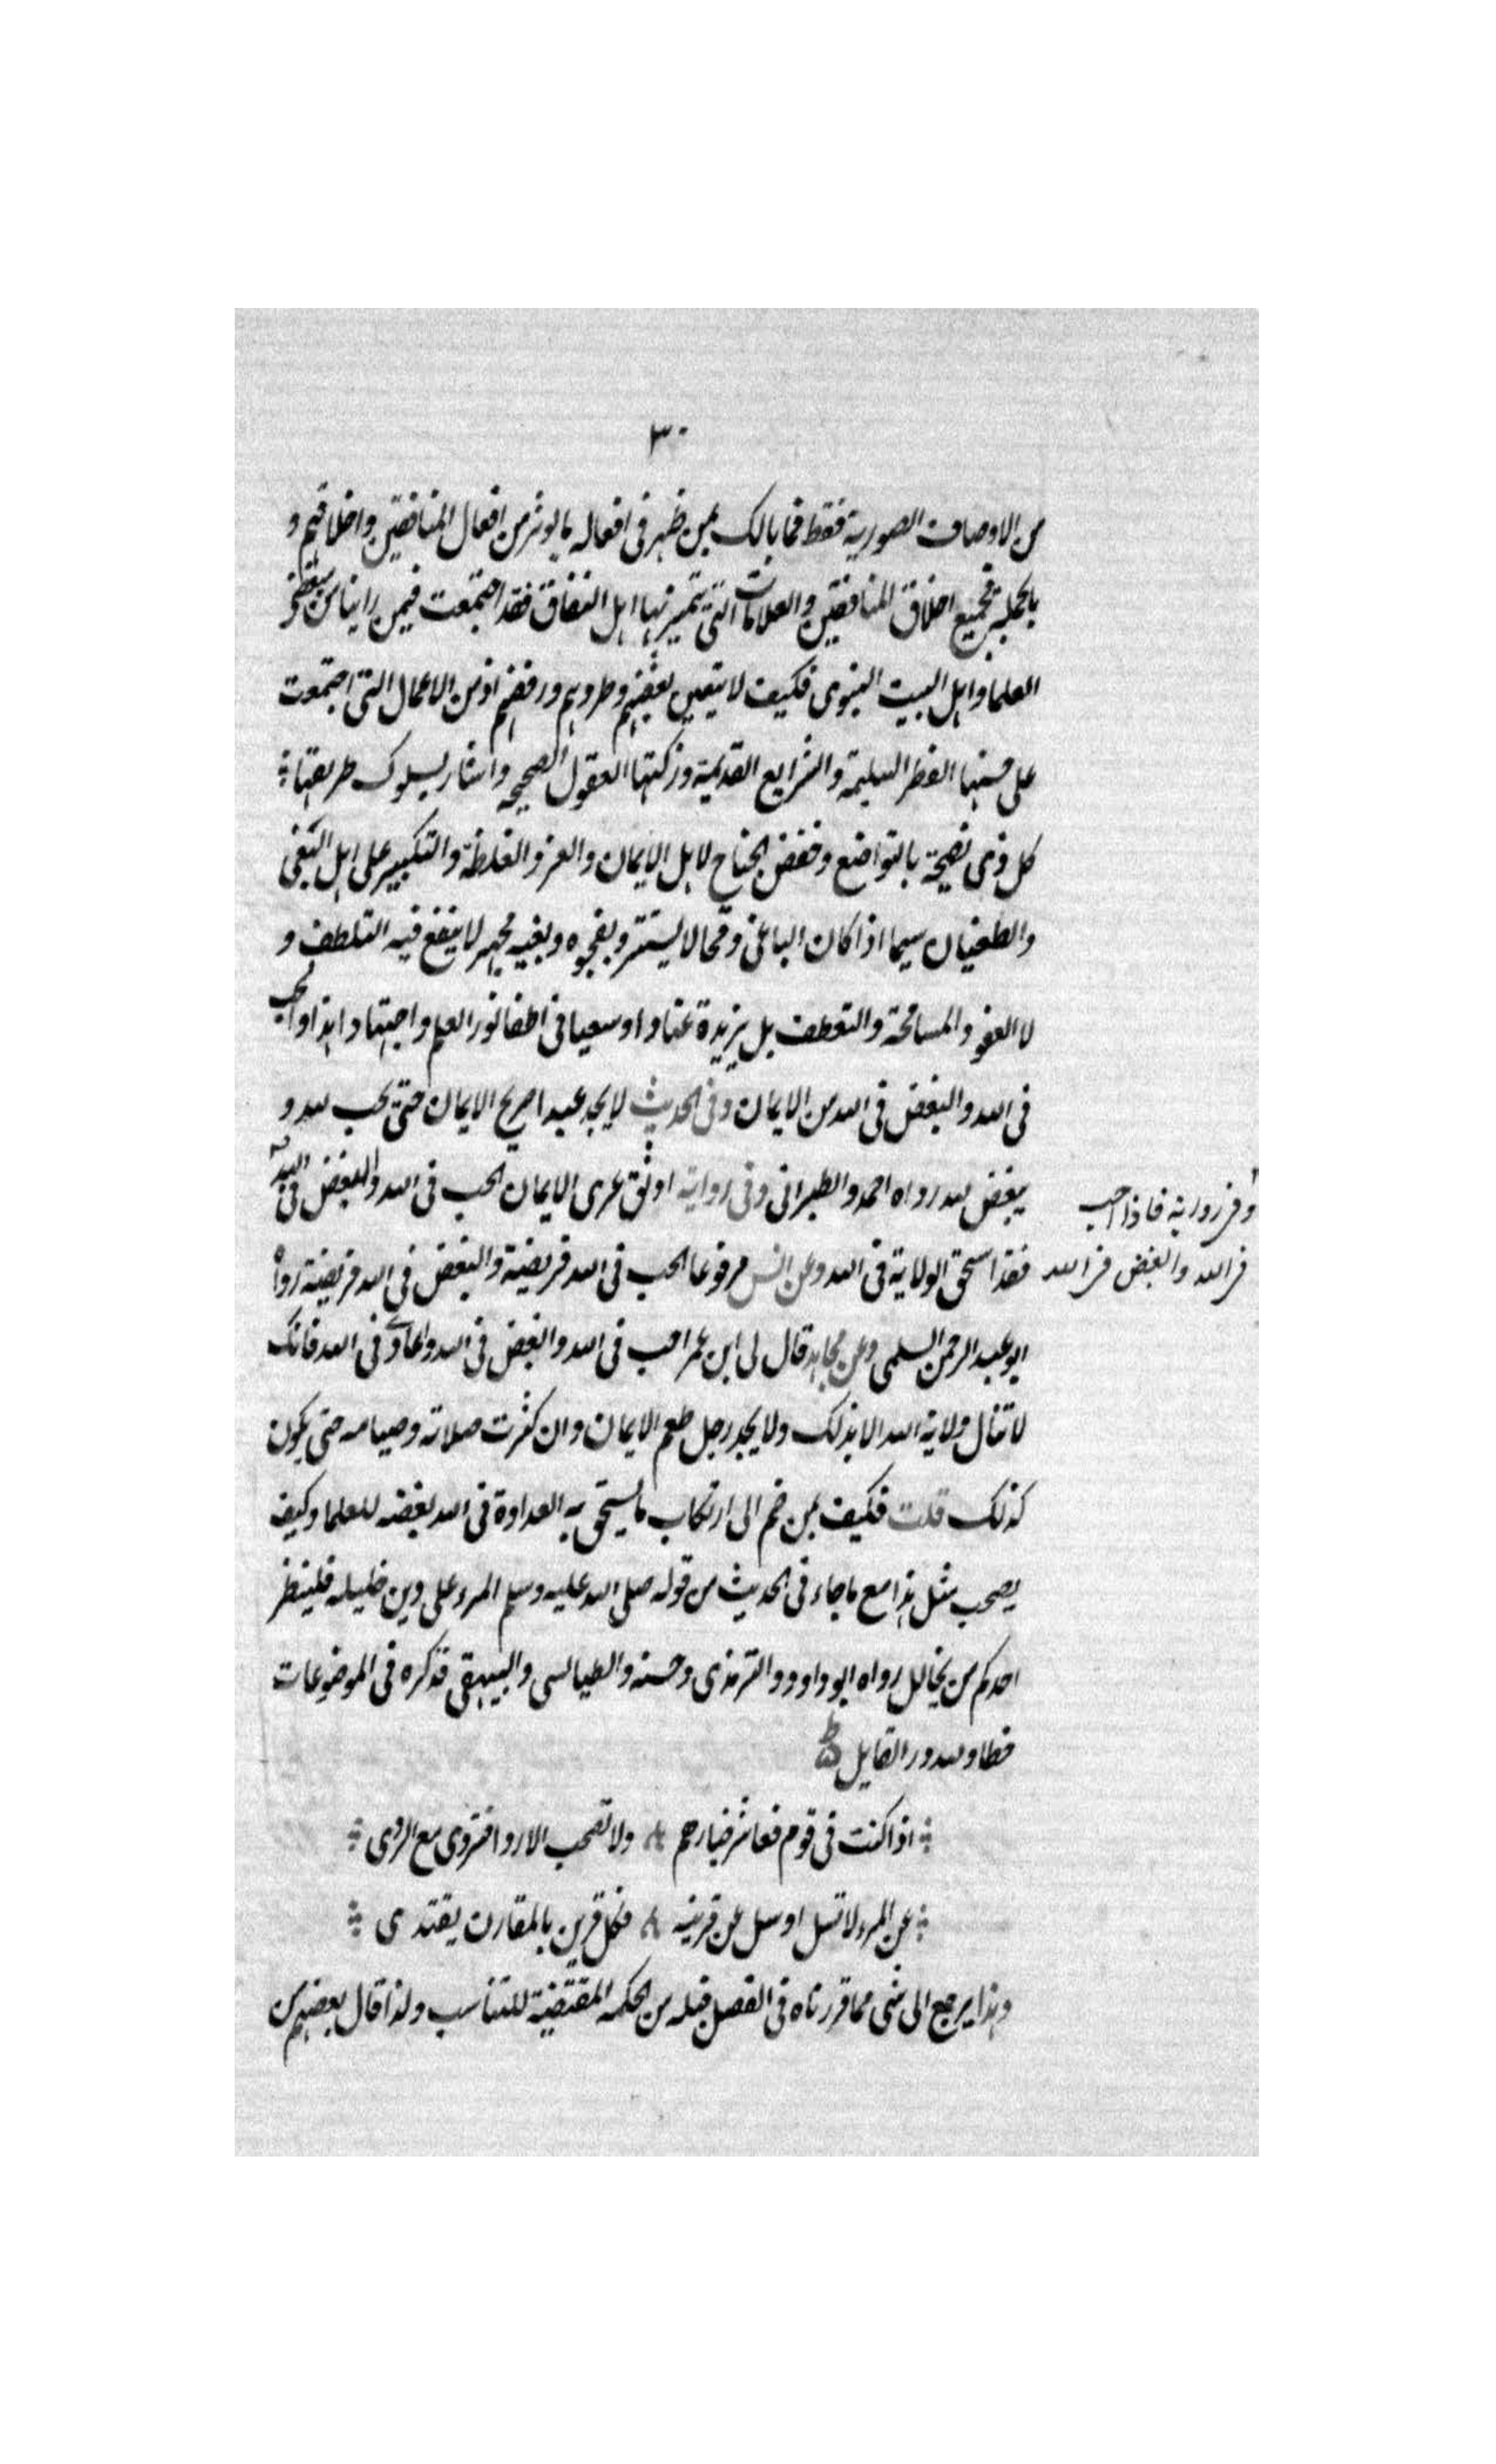 ٣٠
من الاوصاف الصورية فقط فما بالك بمن ظهر فى افعاله ما يوثر من افعال المنافقين واخلاقهم و
بالجملة فجميع اخلاق المنافقين والعلامات التى تتميز بها اهل النفاق فقد اجتمعت فيمن راينا من
العلما واهل البيت النبوى فكيف لا يتعين بغضهم وطردهم ورفضهم اذ من الاعمال التى اجتمعت
على حسنها الفطر السليمة والشرايع القديمة وزكتها العقول الصحيحه واشار بسلوك طريقتها
كل ذى نصيحة بالتواضع وخفض الجناح لاهل الايمان والعز والغلظة والتكبير على اهل البغى
والطغيان سيما اذا كان الباغى وقحا لا يستتر وبفجوه وبغيه يجهر لا ينفع فيه التلطف و
لا العفو والمسامحة والتعطف بل يزيدة عنادا وسعيا فى اطفا نور العلم واجتهاد ابدا والحب
فى الله والبغض فى الله من الايمان وفى الحديث لا يجد عبد صريح الايمان حتى يحب لله و
يبغض لله رواه احمد والطبرانى وفى رواية اوثق عرى الايمان الحب فى الله والبغض فى الله
وفى رواية فاذا احب
فى الله والبغض فى الله
فقد استحق الولاية فى الله وعن انس مرفوعا الحب فى الله فريضة والبغض فى الله فريضة رواه
ابو عبد الرحمن السلمى وعن مجاهد قال لى ابن عمر احب فى الله والبغض فى الله وعادى فى الله فانك
لا تنال ولاية الله الا بذلك ولا يجد رجل طعم الايمان وان كثرت صلاته وصيامه حتى يكون
كذلك قلت فكيف بمن ضم الى ارتكاب ما يستحق به العداوة فى الله بغضه للعلما وكيف
يصحب مثل هذا مع ما جاء فى الحديث من قوله صلى الله عليه وسلم المرء على دين خليله فلينظر
احدكم من يخالل رواه ابو داود والترمذى وحسنه والطيالسى والبيهقى فذكره فى الموضوعات
خطا ولله در القايل
اذا كنت فى قوم فعاشر خيارهم ولا تصحب الاردا فتردى مع الردى
عن المرء لا تسل او سل عن قرينه فكل قرين بالمقارن يقتدى
وهذا يرجع الى شى مما قررناه فى الفصل قبله من الحكمه المقتضية للتناسب ولذا قال بعضهم من